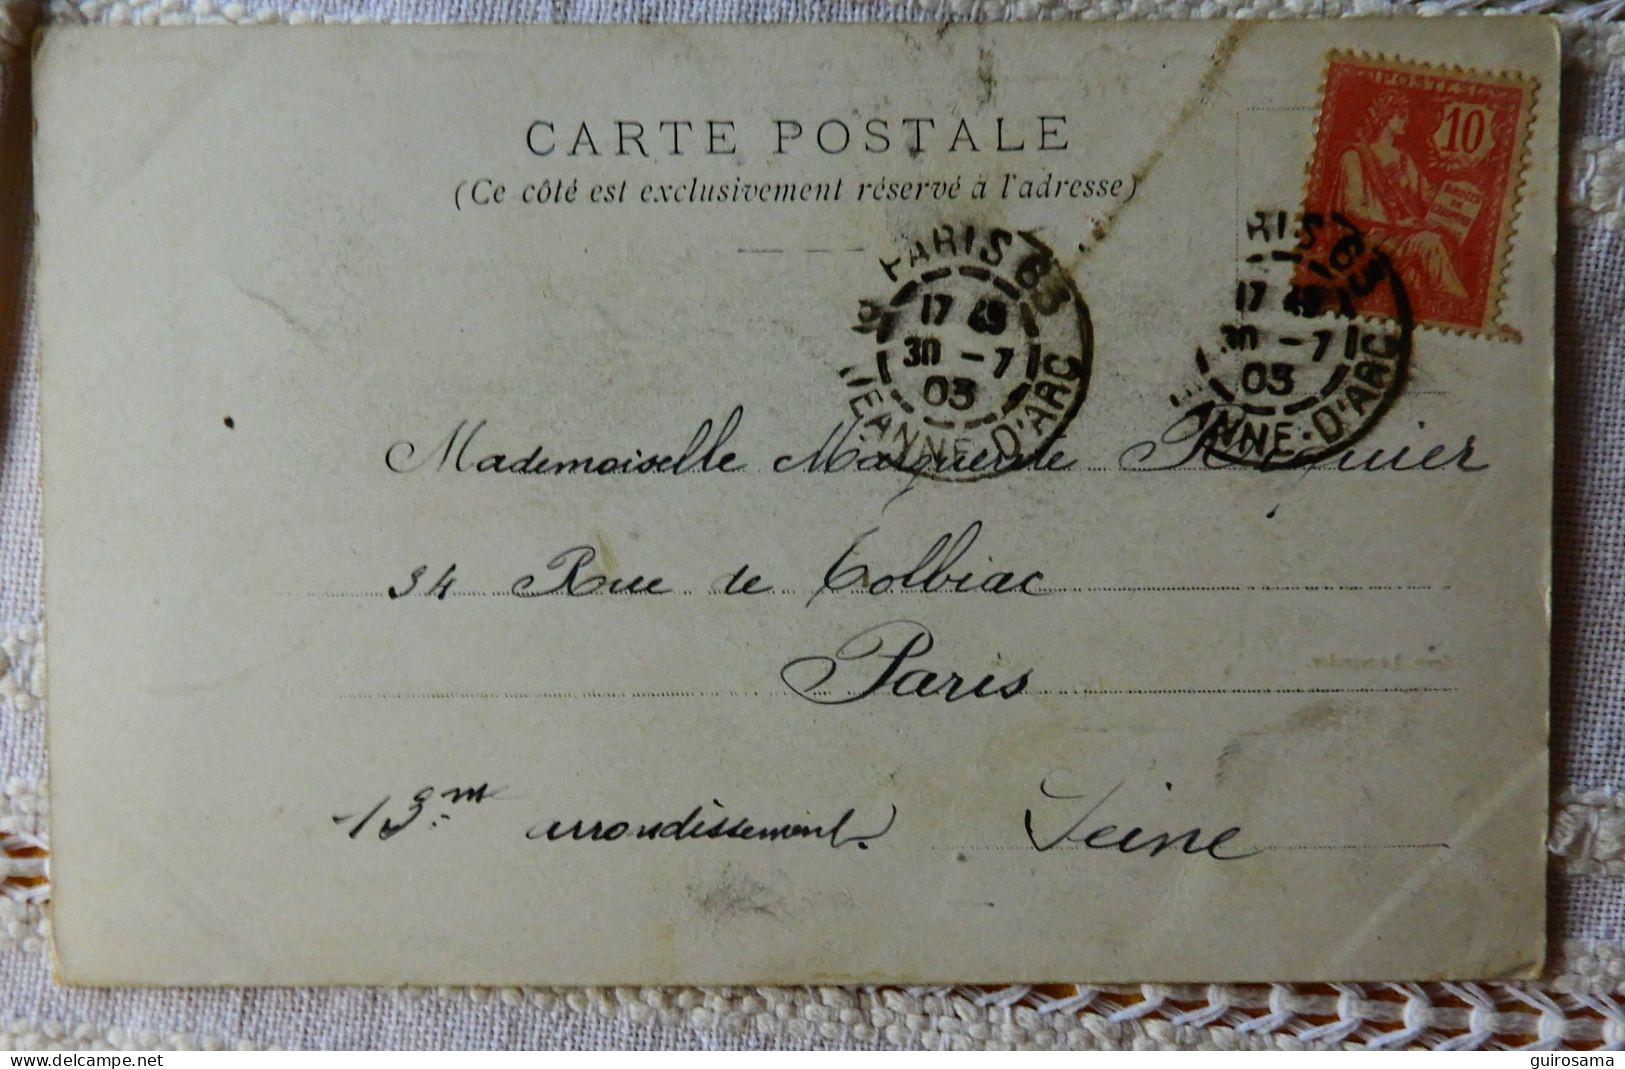 CARTE POSTALE
(Ce côté est exclusivement réservé à l'adresse)
POSTES
10
DROITS DE L'HOMME
PARIS 63
17 45
30 - 7
03
R. JEANNE-D'ARC
RIS 63
17 45
30 - 7
03
EANNE-D'ARC
Mademoiselle Marguerite
34 Rue de Tolbiac
Paris
13me arrondissement. Seine
delcampe.net
guirosama